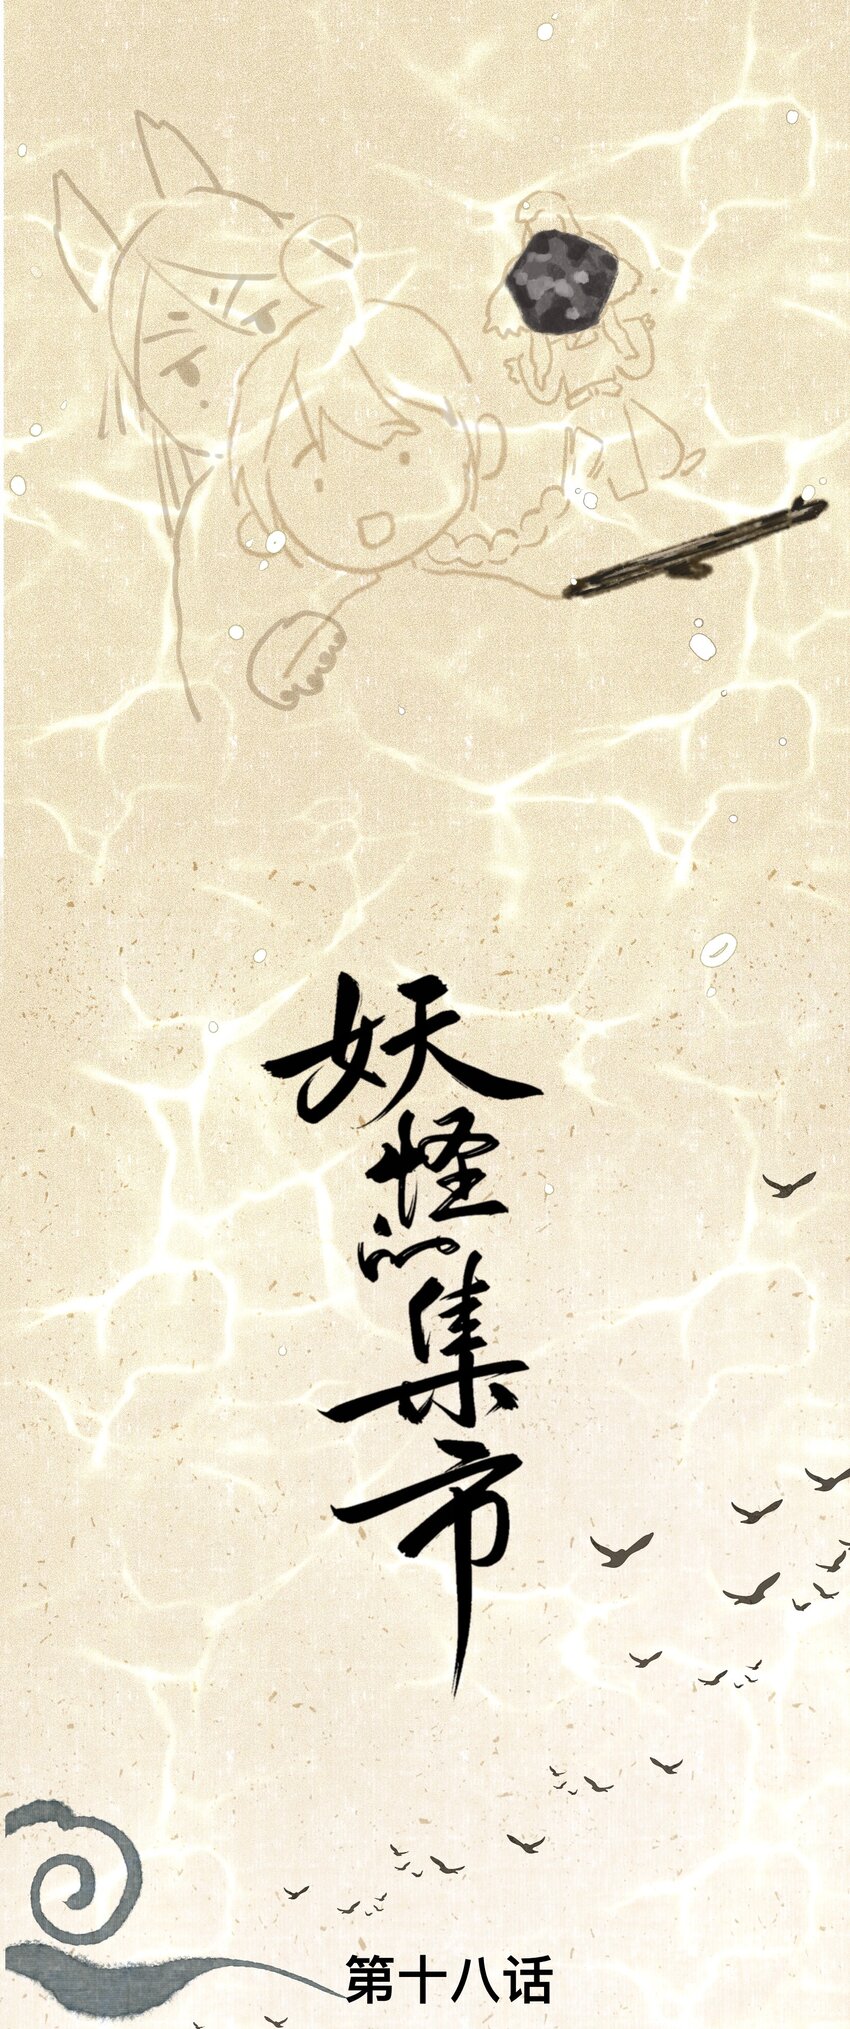 妖怪的集市
第十八话